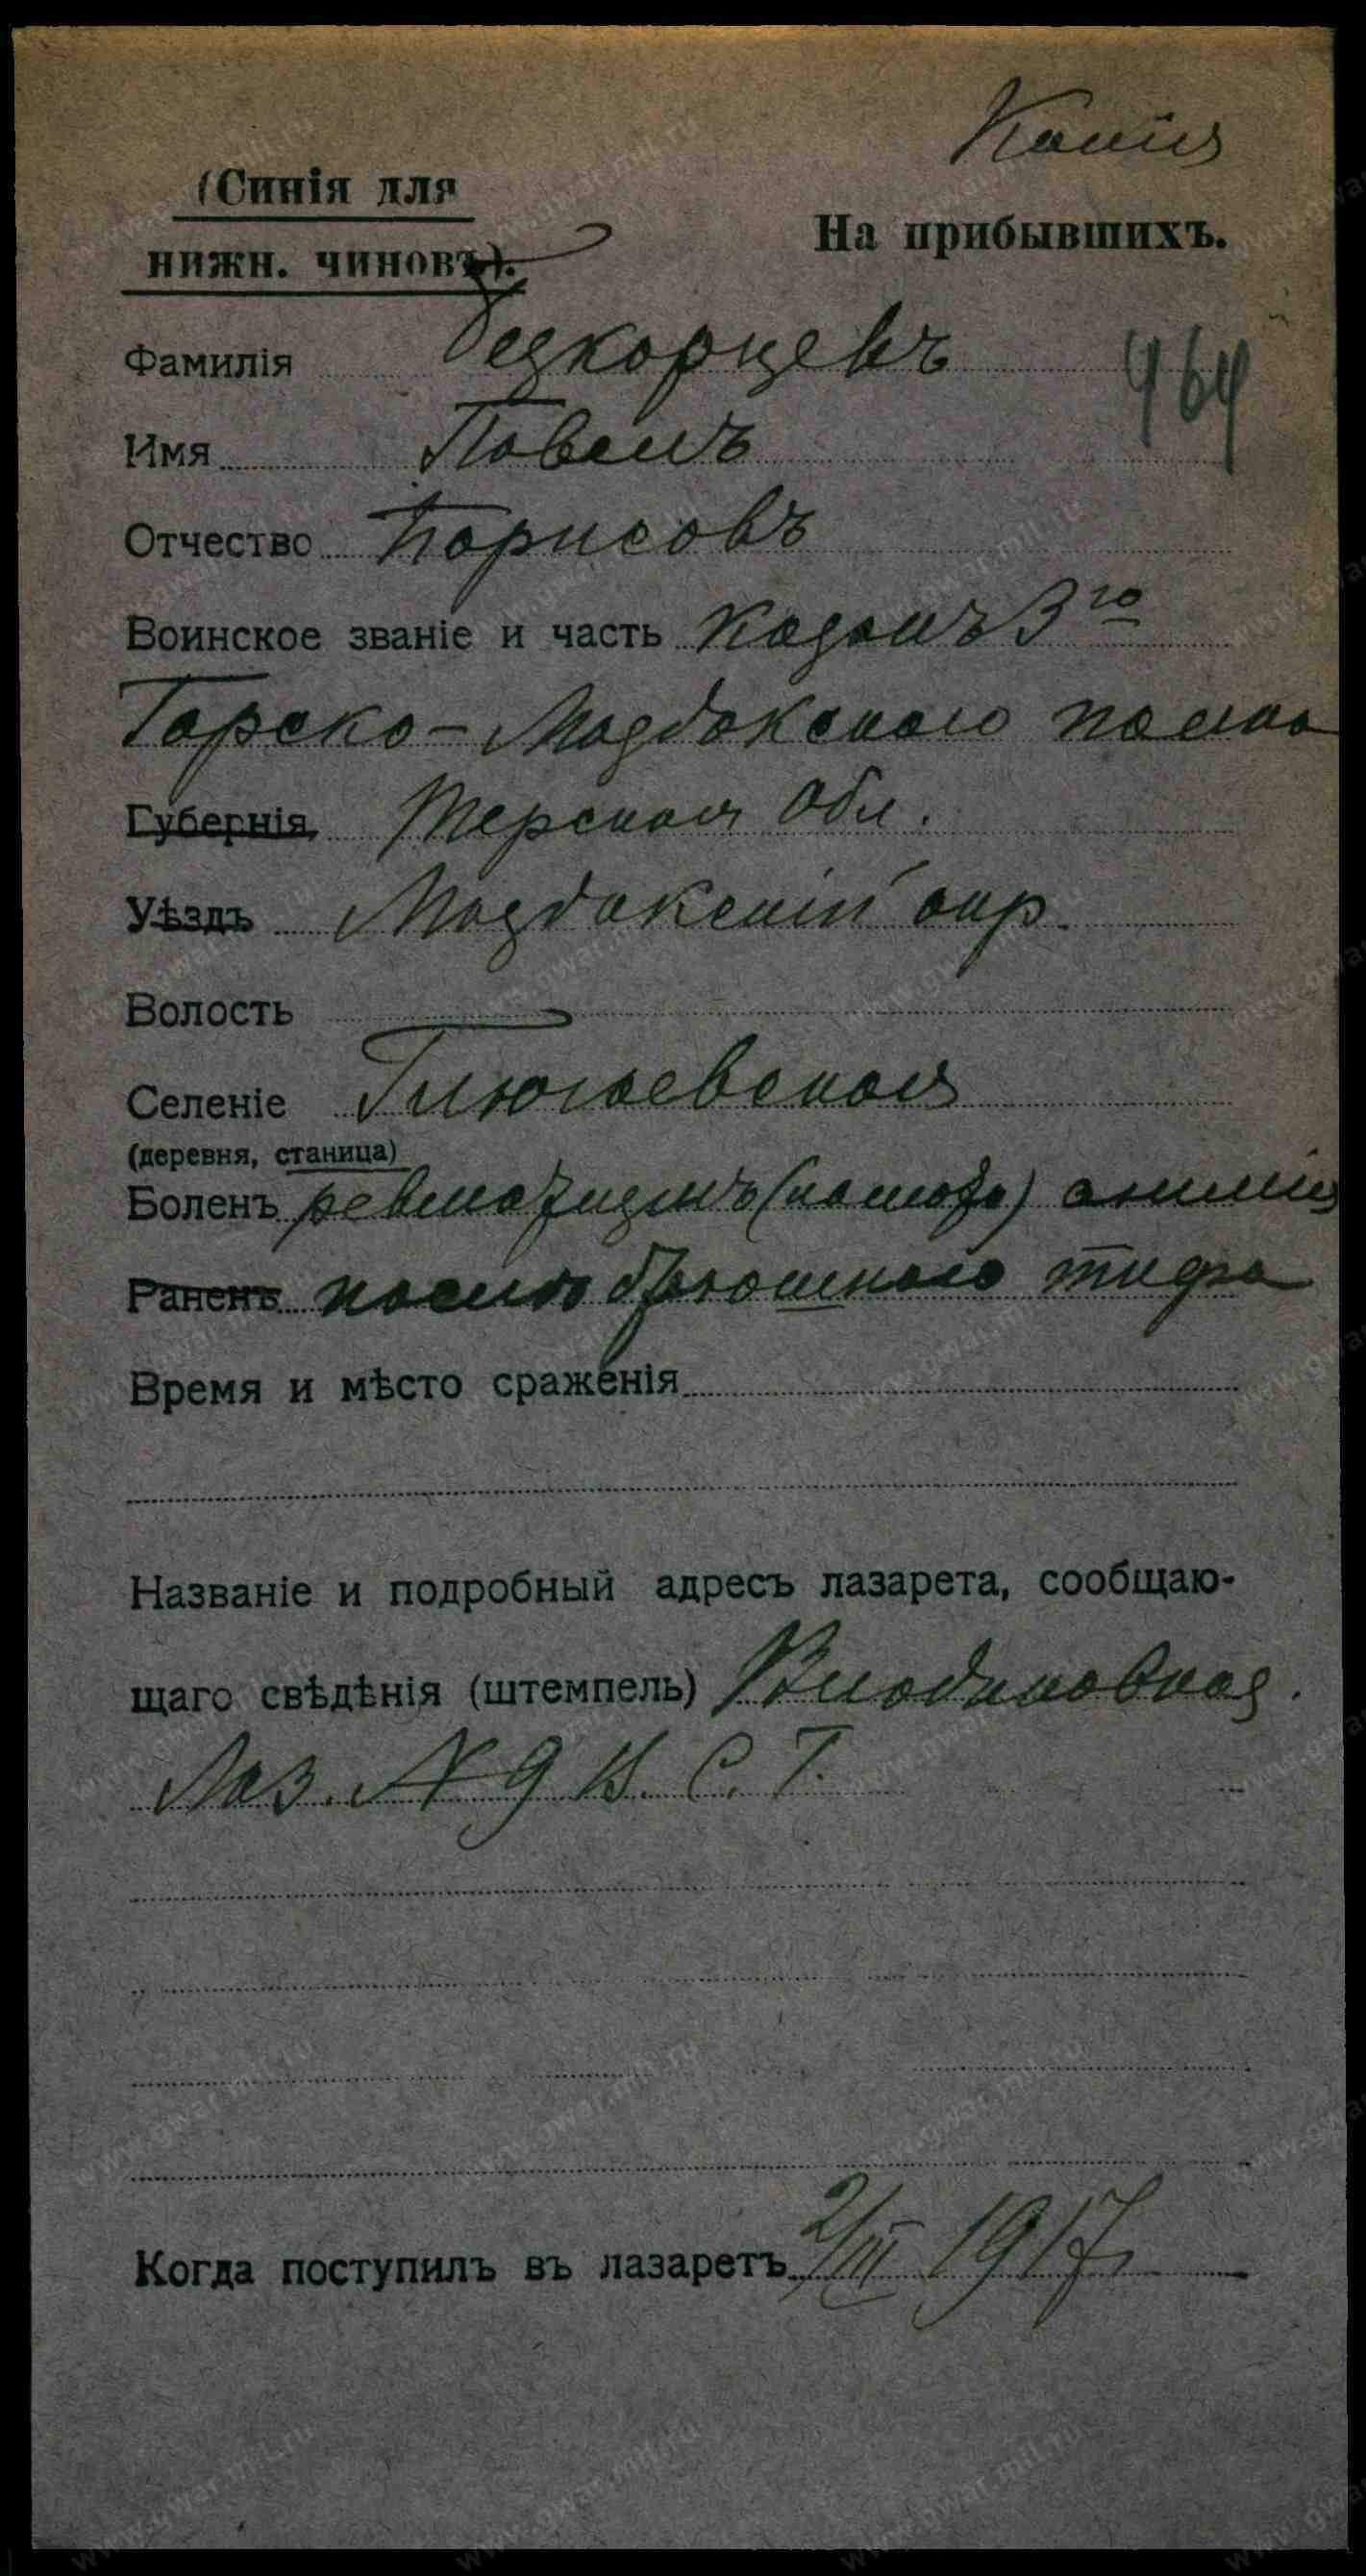 Копія
(Синія для
нижн. чиновъ).
На прибывшихъ.
Фамилія Бецкорцевъ
464
Имя Павелъ
Отчество Борисовъ
Воинское званіе и часть Казакъ 3го
Горско-Моздокского полка
Губернія Терская Обл.
Уѣздъ Моздокскій окр.
Волость
Селеніе
(деревня, станица)
Боленъ ревматизмъ анемія
Раненъ послѣ брюшного тифа
Время и мѣсто сраженія
Названіе и подробный адресъ лазарета, сообщаю-
щаго свѣдѣнія (штемпель) Владикавказ.
Лаз. № 9 В. С. Г.
Когда поступилъ въ лазаретъ 2/III 1917 г.